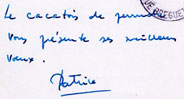 Le cacatois de
vous présente ses meilleurs
vœux.
Patrice